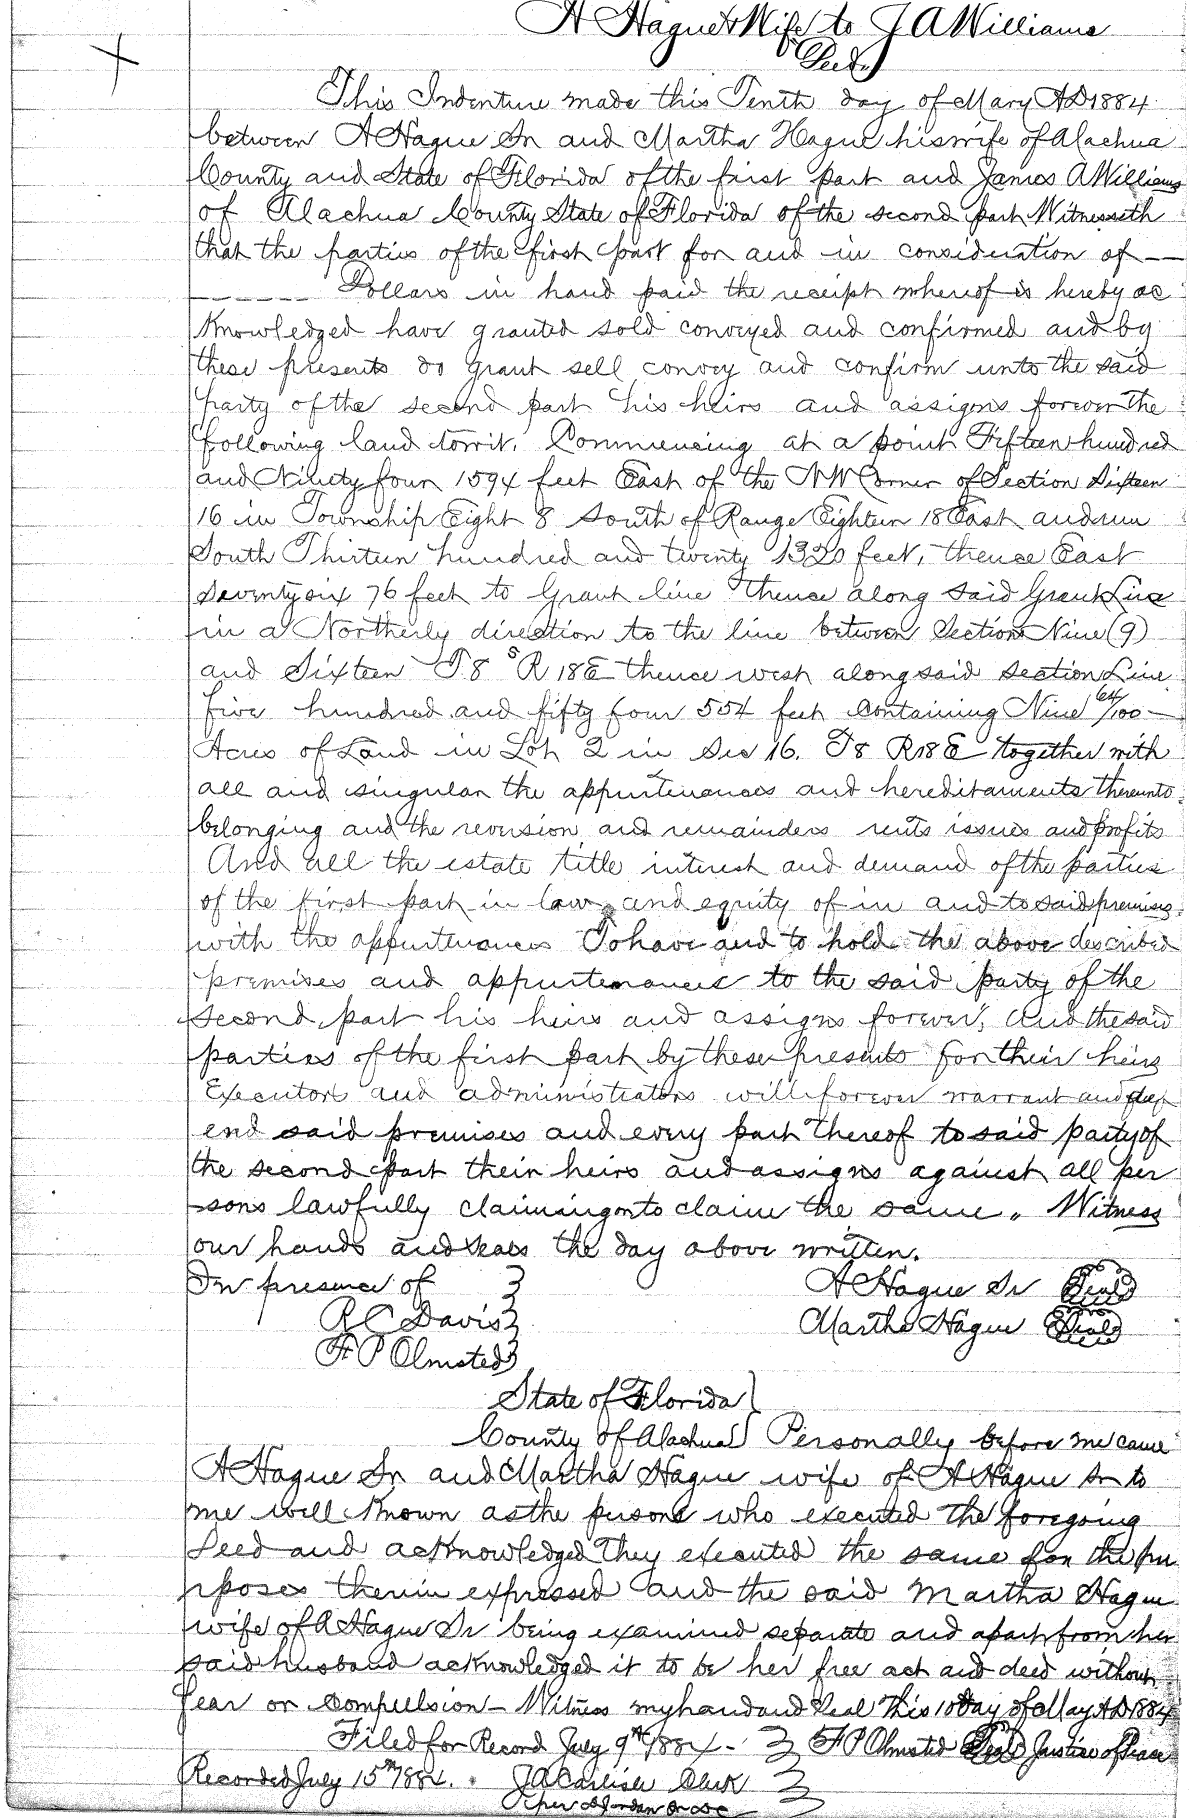 A Hague & Wife to J A Williams
Deed
This Indenture made this Tenth day of Mary AD 1884
between A Hague Sr and Martha Hague his wife of Alachua
County and State of Florida of the first part and James A Williams
of Alachua County State of Florida of the second part Witnesseth
that the parties of the first part for and in consideration of —
------ Dollars in hand paid the receipt whereof is hereby ac
knowledged have granted sold conveyed and confirmed and by
these presents do grant sell convey and confirm unto the said
party of the second part his heirs and assigns forever the
following land towit. Commencing at a point Fifteen hundred
and Ninety four 1594 feet East of the NW Corner of Section Sixteen
16 in Township Eight 8 South of Range Eighteen 18 East and run
South Thirteen hundred and twenty 1320 feet, thence East
Seventy six 76 feet to Grant line thence along said Grant Line
in a Northerly direction to the line between Sections Nine (9)
and Sixteen T.8 S R 18 E thence west along said section Line
five hundred and fifty four 554 feet containing Nine 64/100 —
Acres of Land in Lot 2 in Sec 16. T8 R18 E together with
all and singular the appurtenances and hereditaments thereunto
belonging and the reversion and remainders rents issues and profits
And all the estate title interest and demand of the parties
of the first part in law and equity of in and to said premises
with the appurtenances To have and to hold the above described
premises and appurtenances to the said party of the
second part his heirs and assigns forever, And the said
parties of the first part by these presents for their heirs
Executors and administrators will forever warrant and def
end said premises and every part thereof to said party of
the second part their heirs and assigns against all per
sons lawfully claiming or to claim the same. Witness
our hands and seals the day above written.
In presence of } A Hague Sr Seal
R C Davis } Martha Hague Seal
F P Olmsted }
State of Florida }
County of Alachua } Personally before me came
A Hague Sr and Martha Hague wife of A Hague Sr to
me well known as the persons who executed the foregoing
Deed and acknowledged they executed the same for the pu
rposes therein expressed and the said Martha Hague
wife of A Hague Sr being examined separate and apart from her
said husband acknowledged it to be her free act and deed without
fear or compulsion — Witness my hand and Seal this 10 Day of May AD 1884
Filed for Record July 9th 1884 - } F P Olmsted Seal Justice of Peace
Recorded July 15th 1884. J A Carlisle Clerk }
per